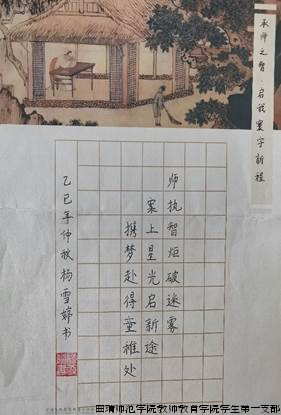 承师之智·启我寰宇新程
师执智炬破迷雾
案上星光启新途
携梦赴得童稚处
乙巳年仲秋杨雪婷书
曲靖师范学院教师教育学院学生第一支部